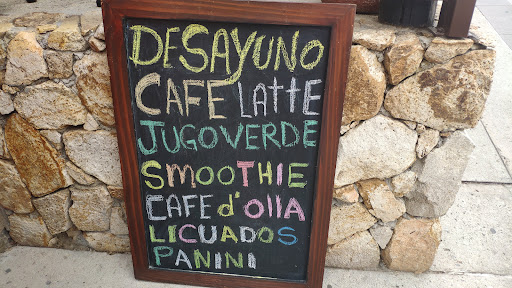 DESAYUNO
CAFE LATTE
JUGO VERDE
SMOOTHIE
CAFE d'OllA
LICUADOS
PANINI